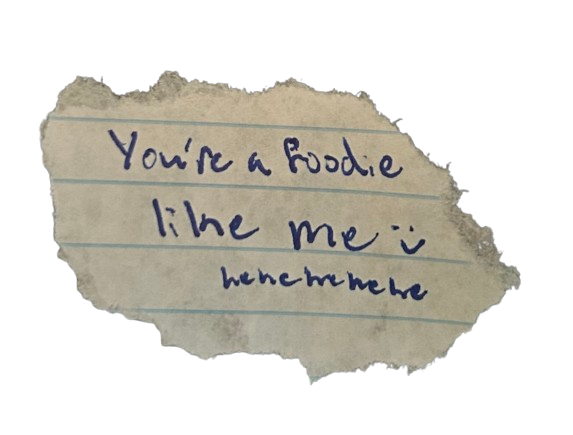 You're a foodie
like me :)
hehehehehe